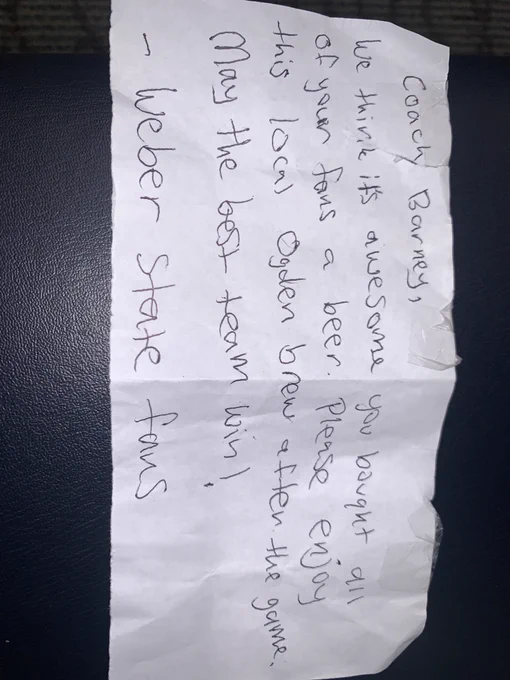 Coach Barney,
We think it's awesome you bought all
of your fans a beer. Please enjoy
this local Ogden brew after the game.
May the best team win!
- Weber State fans